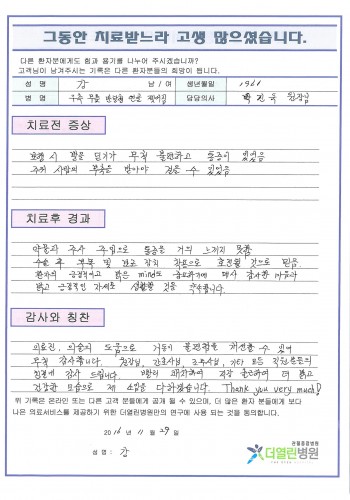 그동안 치료받느라 고생 많으셨습니다.
다른 환자분에게도 힘과 용기를 나누어 주시겠습니까?
고객님이 남겨주시는 기록은 다른 환자분들의 희망이 됩니다.
성 명 강 남 / 여 생년월일 1961
병 명 우측 무릎 반월형 연골 담당의사 원장님
치료전 증상
보행 시 발을 딛기가 무척 불편하고 통증이 있었음
주위 사람의 부축을 받아야 걸을 수 있었음
치료후 경과
약물과 주사 주입으로 통증을 거의 느끼지 못함
수술 후 부목 및 보조 장치 착용으로 호전될 것으로 믿음
환자의 긍정적이고 밝은 mind도 중요하기에 매사 감사한 마음과
밝고 긍정적인 자세로 생활할 것을 약속합니다.
감사와 칭찬
의료진, 의술의 도움으로 거동의 불편함을 개선할 수 있어
무척 감사합니다. 원장님, 간호사님, 기타 모든 직원분들의
친절에 감사 드립니다. 빨리 쾌차하여 직장 복귀하여 더 밝고
건강한 모습으로 제 소임을 다하겠습니다. Thank you very much!
위 기록은 온라인 또는 다른 고객 분들에게 공개 될 수 있으며, 더 많은 환자 분들에게 보다
나은 의료서비스를 제공하기 위한 더열린병원만의 연구에 사용 되는 것을 동의합니다.
2016 년 11 월 29 일
성 명 : 강
관절중점병원
더열린병원